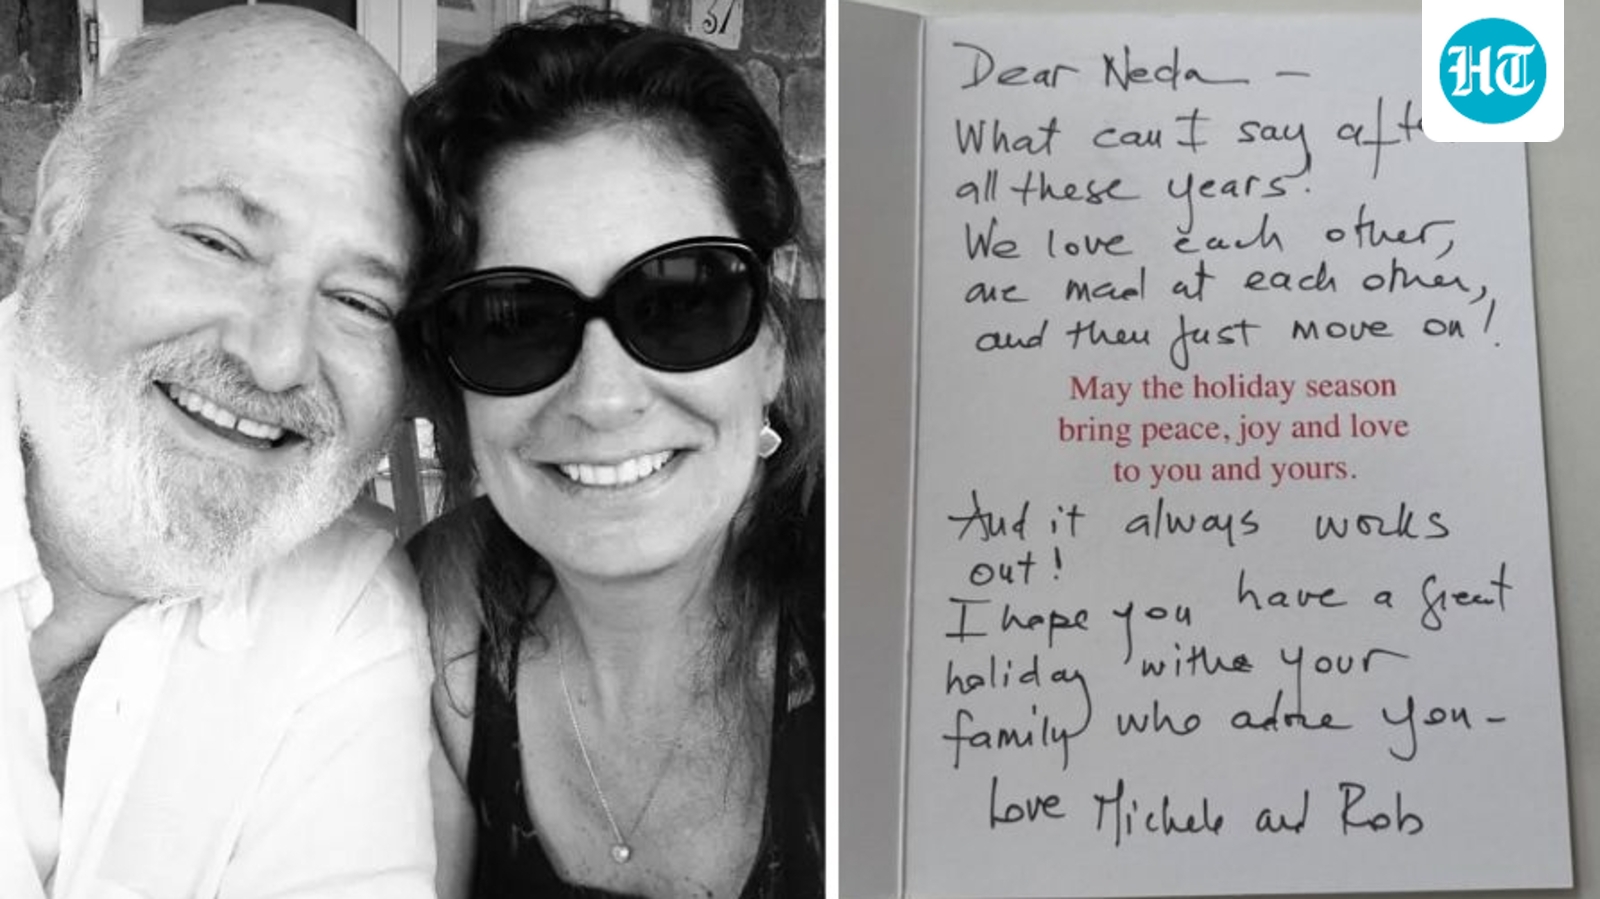 31
HT
Dear Neda —
What can I say
all these years.
We love each other,
are mad at each other,
and then just move on!
May the holiday season
bring peace, joy and love
to you and yours.
And it always works
out!
I hope you have a great
holiday withe your
family who adore you –
Love Michele and Rob